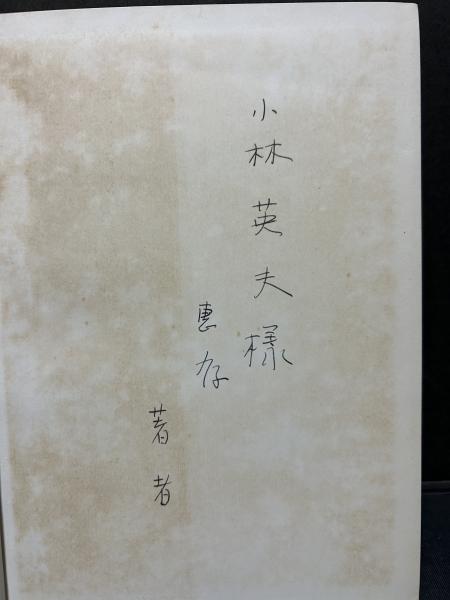 小林英夫様
惠存
著者